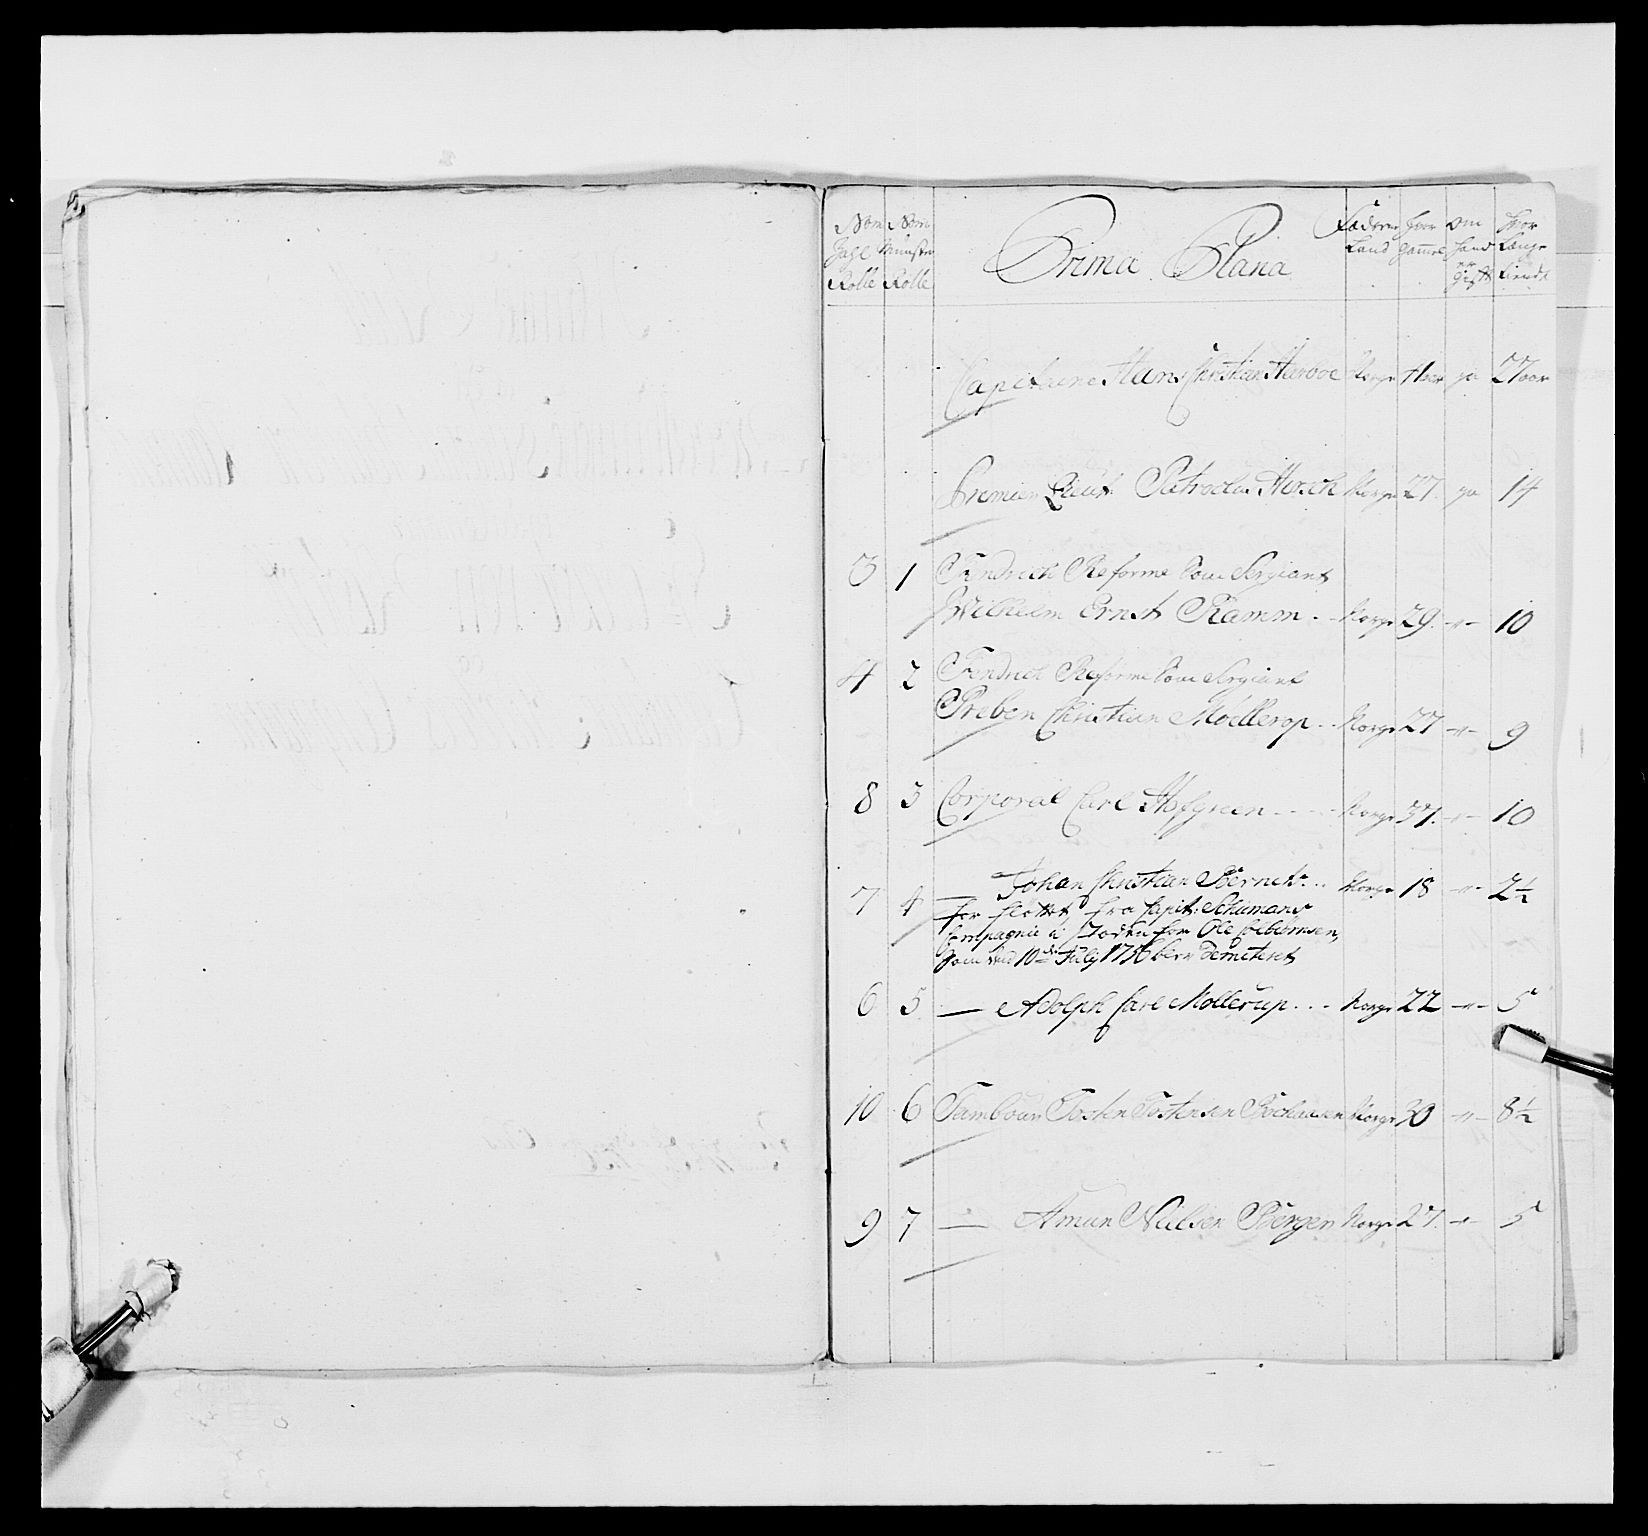 Nom Zahl Rolle
Nom Mönster Rolle
Prima Plana
Fæderne Land
hvor gamel
om hand er gift
hvor Længe tiendt
Capitaine Hans Christian Harboe Norge 41 aar ja 27 aar
Premier Lieut: Patroclus Hirsch Norge 27. ja 14
3 1 Fendrich Reforme som Sergiant
Wilhelm Ernst Ramm .. Norge 29. -"- 10
4 2 Fendrich Reforme som Sergiant
Preben Christian Möellerop .. Norge 27 -"- 9
8 3 Corporal Carl Hofgreen - - - Norge 37. -"- 10
7 4 — Johan Christian Berneth .. Norge 18 -"- 2½
for fløttet fra Capit: Schumans
Compagnie i Stæden for Ole
som ved 10de July 1756 blev Demiteret
6 5 — Adolph Carl Mollerup ... Norge 22 -"- 5
10 6 Tambour Tosten Tostensen Norge 30 -"- 8½
9 7 — Amun Nielsen Bergen Norge 27. -"- 5